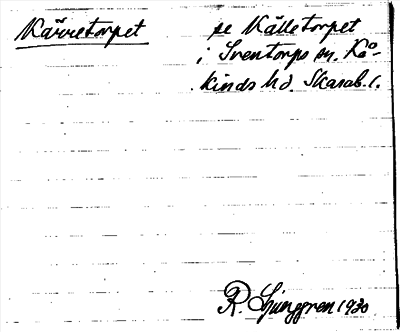 Kärretorpet se Källetorpet
i Sventorps sn. Kå-
kinds hd. Skarab. l.
R. Ljunggren 1930